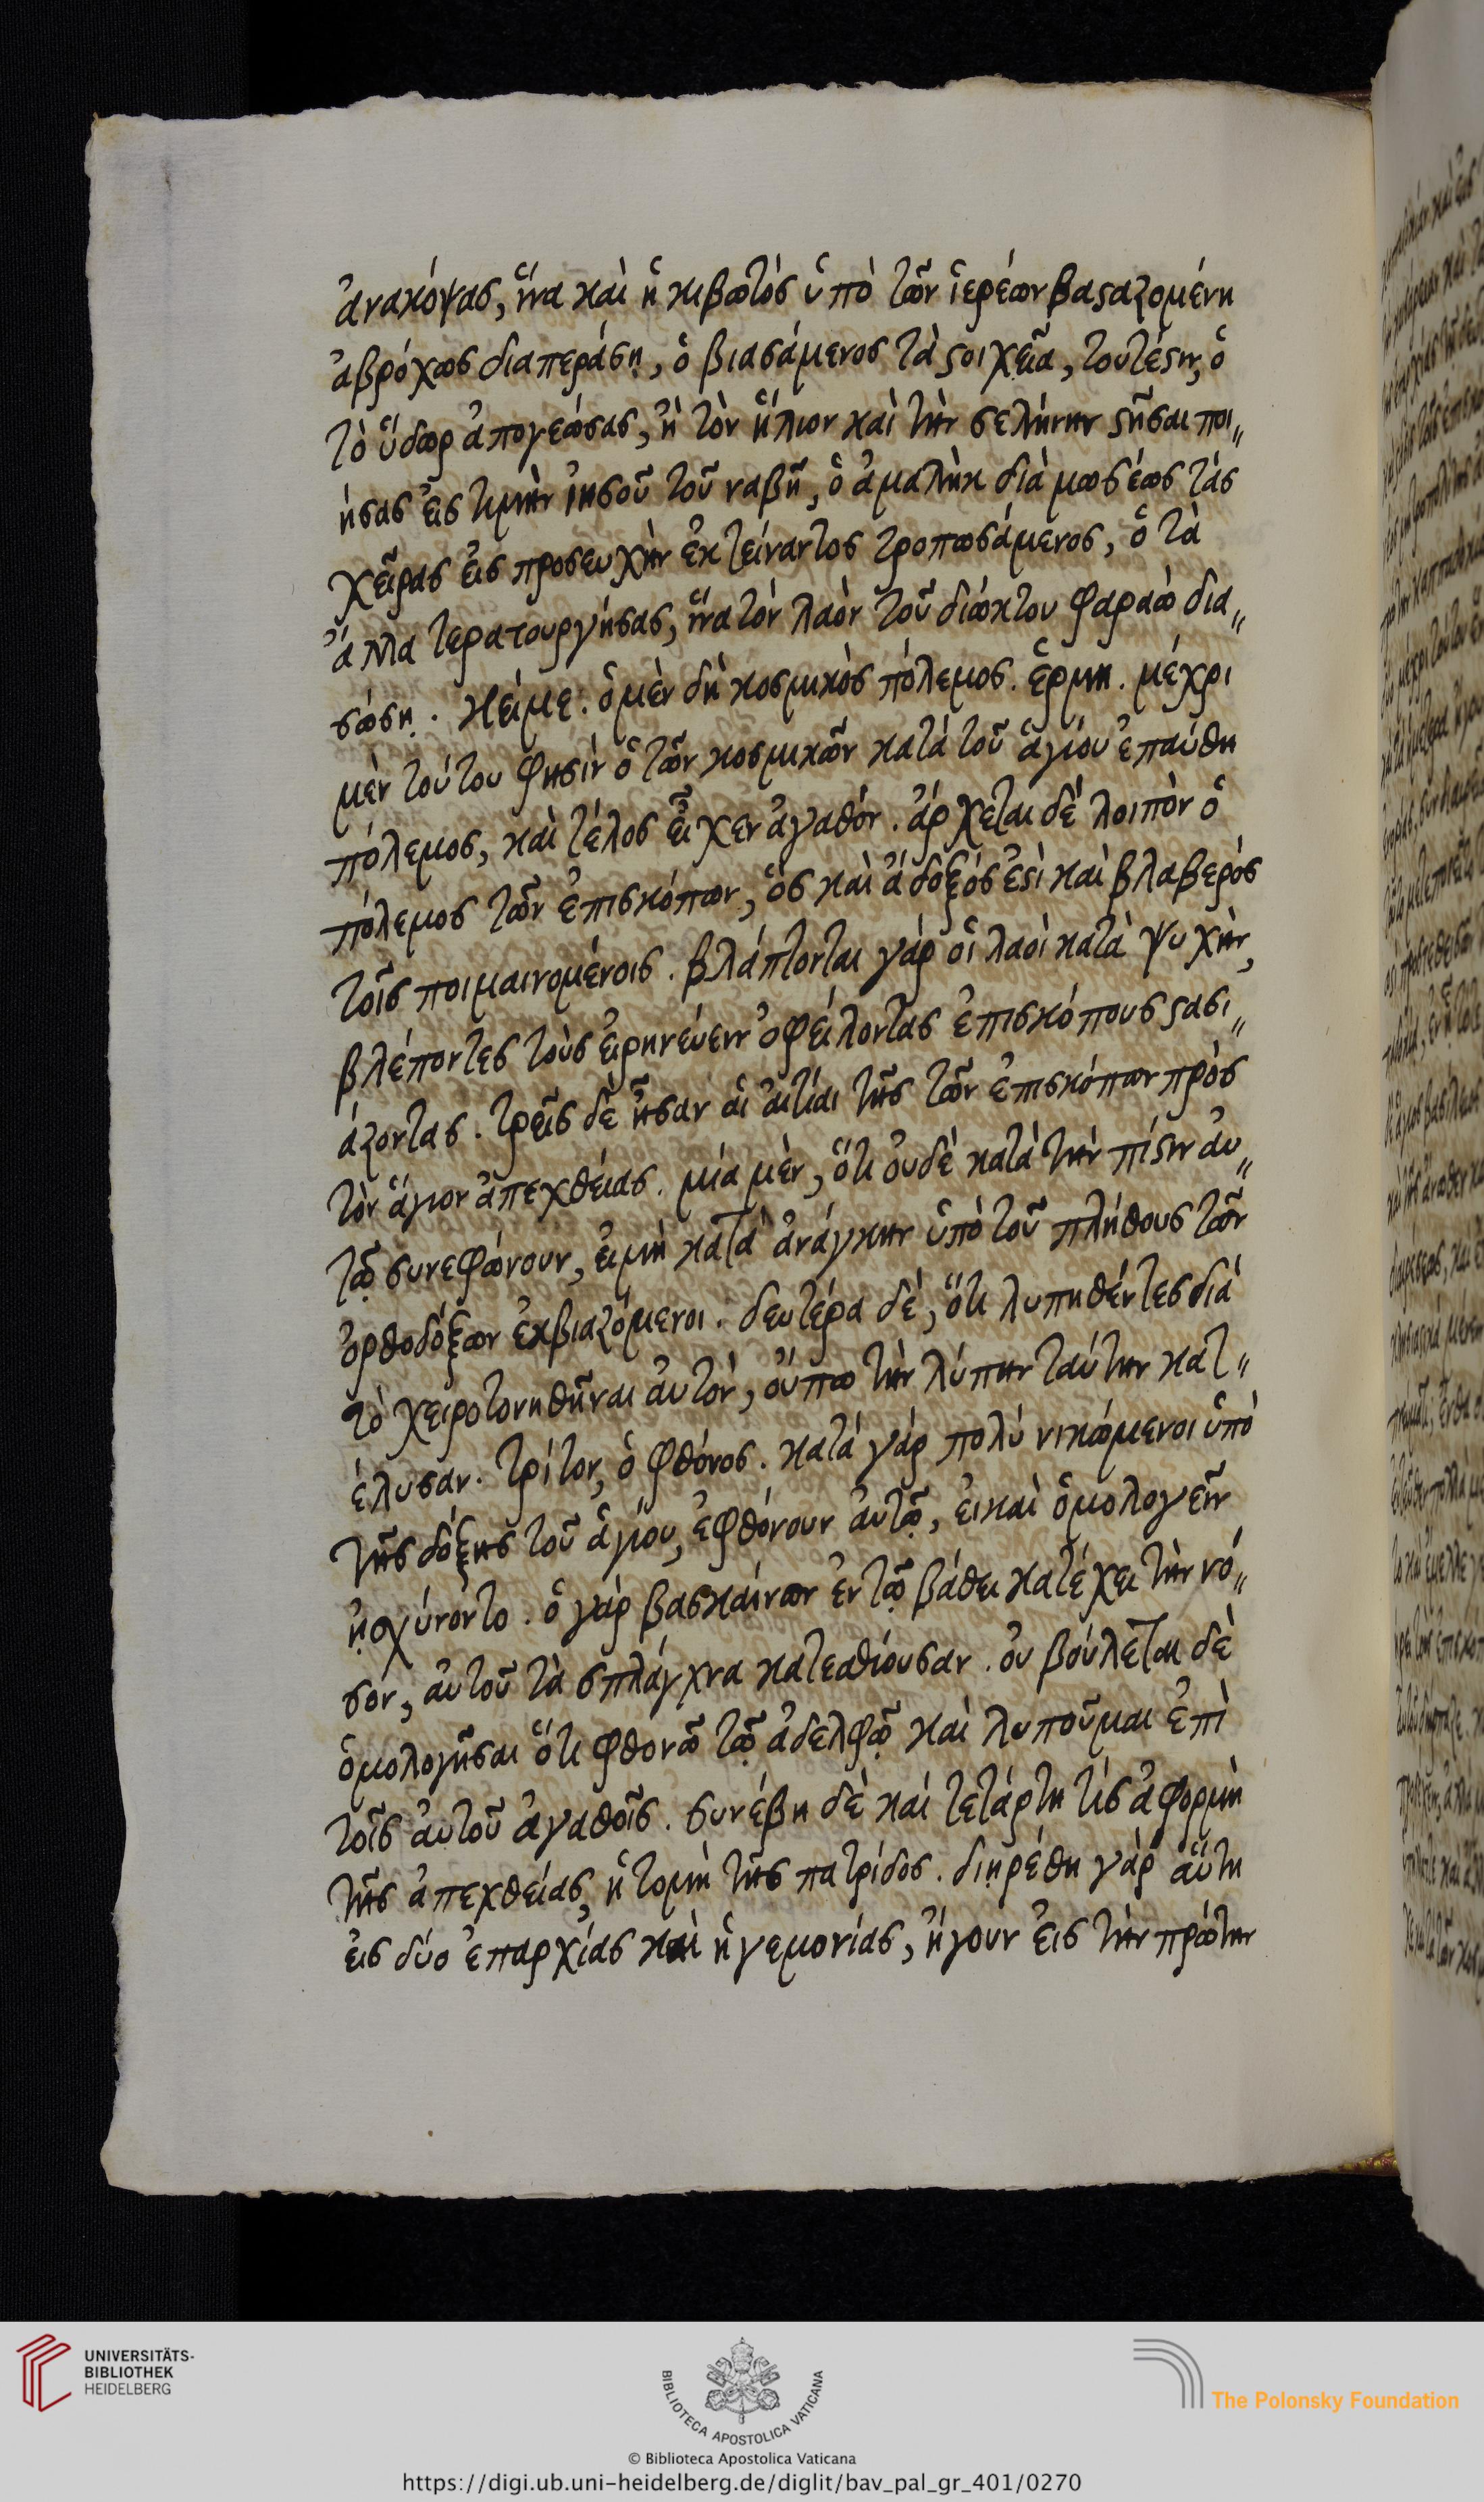 ἀνακόψας, ἵνα καὶ ἡ κιβωτὸς ὑπὸ τῶν ἱερέων βασταζομένη
ἀβρόχως διαπεράσῃ, ὁ βιασάμενος τὰ στοιχεῖα, τουτέστιν, ὁ
τὸ ὕδωρ ἀπογεώσας, ἢ τὸν ἥλιον καὶ τὴν σελήνην στῆσαι ποι„
ήσας εἰς τιμὴν ἰησοῦ τοῦ ναβῆ, ὁ ἀμαλὴκ διὰ μωσέως τὰς
χεῖρας εἰς προσευχὴν ἐκτείναντος τροπωσάμενος, ὁ τὰ
ἄλλα τερατουργήσας, ἵνα τὸν λαὸν τοῦ διώκτου φαραὼ δια„
σώσῃ. κείμε: ὁ μὲν δὴ κοσμικὸς πόλεμος. ἑρμη. μέχρι
μὲν τούτου φησὶν ὁ τῶν κοσμικῶν κατὰ τοῦ ἁγίου ἐπαύθη
πόλεμος, καὶ τέλος εἶχεν ἀγαθόν. ἄρχεται δὲ λοιπὸν ὁ
πόλεμος τῶν ἐπισκόπων, ὃς καὶ ἄδοξός ἐστὶ καὶ βλαβερὸς
τοῖς ποιμαινομένοις. βλάπτονται γὰρ οἱ λαοὶ κατὰ ψυχὴν,
βλέποντες τοὺς εἰρηνεύειν ὀφείλοντας ἐπισκόπους στασι„
άζοντας. τρεῖς δὲ ἦσαν αἱ αἰτίαι τῆς τῶν ἐπισκόπων πρὸς
τὸν ἅγιον ἀπεχθείας. μία μὲν, ὅτι οὐδὲ κατὰ τὴν πίστιν αὐ„
τῷ συνεφώνουν, εἰμὴ κατὰ ἀνάγκην ὑπὸ τοῦ πλήθους τῶν
ὀρθοδόξων ἐκβιαζόμενοι. δευτέρα δὲ, ὅτι λυπηθέντες διὰ
τὸ χειροτονηθῆναι αὐτὸν, οὔπω τὴν λύπην ταύτην κατ„
έλυσαν. τρίτον, ὁ φθόνος. κατὰ γὰρ πολὺ νικώμενοι ὑπὸ
τῆς δόξης τοῦ ἁγίου, ἐφθόνουν αὐτῷ, εἰ καὶ ὁμολογεῖν
ᾐσχύνοντο. ὁ γὰρ βασκαίνων ἐν τῷ βάθει κατέχει τὴν νό„
σον, αὐτοῦ τὰ σπλάγχνα κατεσθίουσαν. οὐ βούλεται δὲ
ὁμολογῆσαι ὅτι φθονῶ τῷ ἀδελφῷ καὶ λυποῦμαι ἐπὶ
τοῖς αὐτοῦ ἀγαθοῖς. συνέβη δὲ καὶ τετάρτη τὶς ἀφορμὴ
τῆς ἀπεχθείας, ἡ τομὴ τῆς πατρίδος. διῃρέθη γὰρ αὕτη
εἰς δύο ἐπαρχίας καὶ ἡγεμονίας, ἤγουν εἰς τὴν πρώτην
UNIVERSITÄTS-
BIBLIOTHEK
HEIDELBERG
BIBLIOTECA APOSTOLICA VATICANA
The Polonsky Foundation
© Biblioteca Apostolica Vaticana
https://digi.ub.uni-heidelberg.de/diglit/bav_pal_gr_401/0270